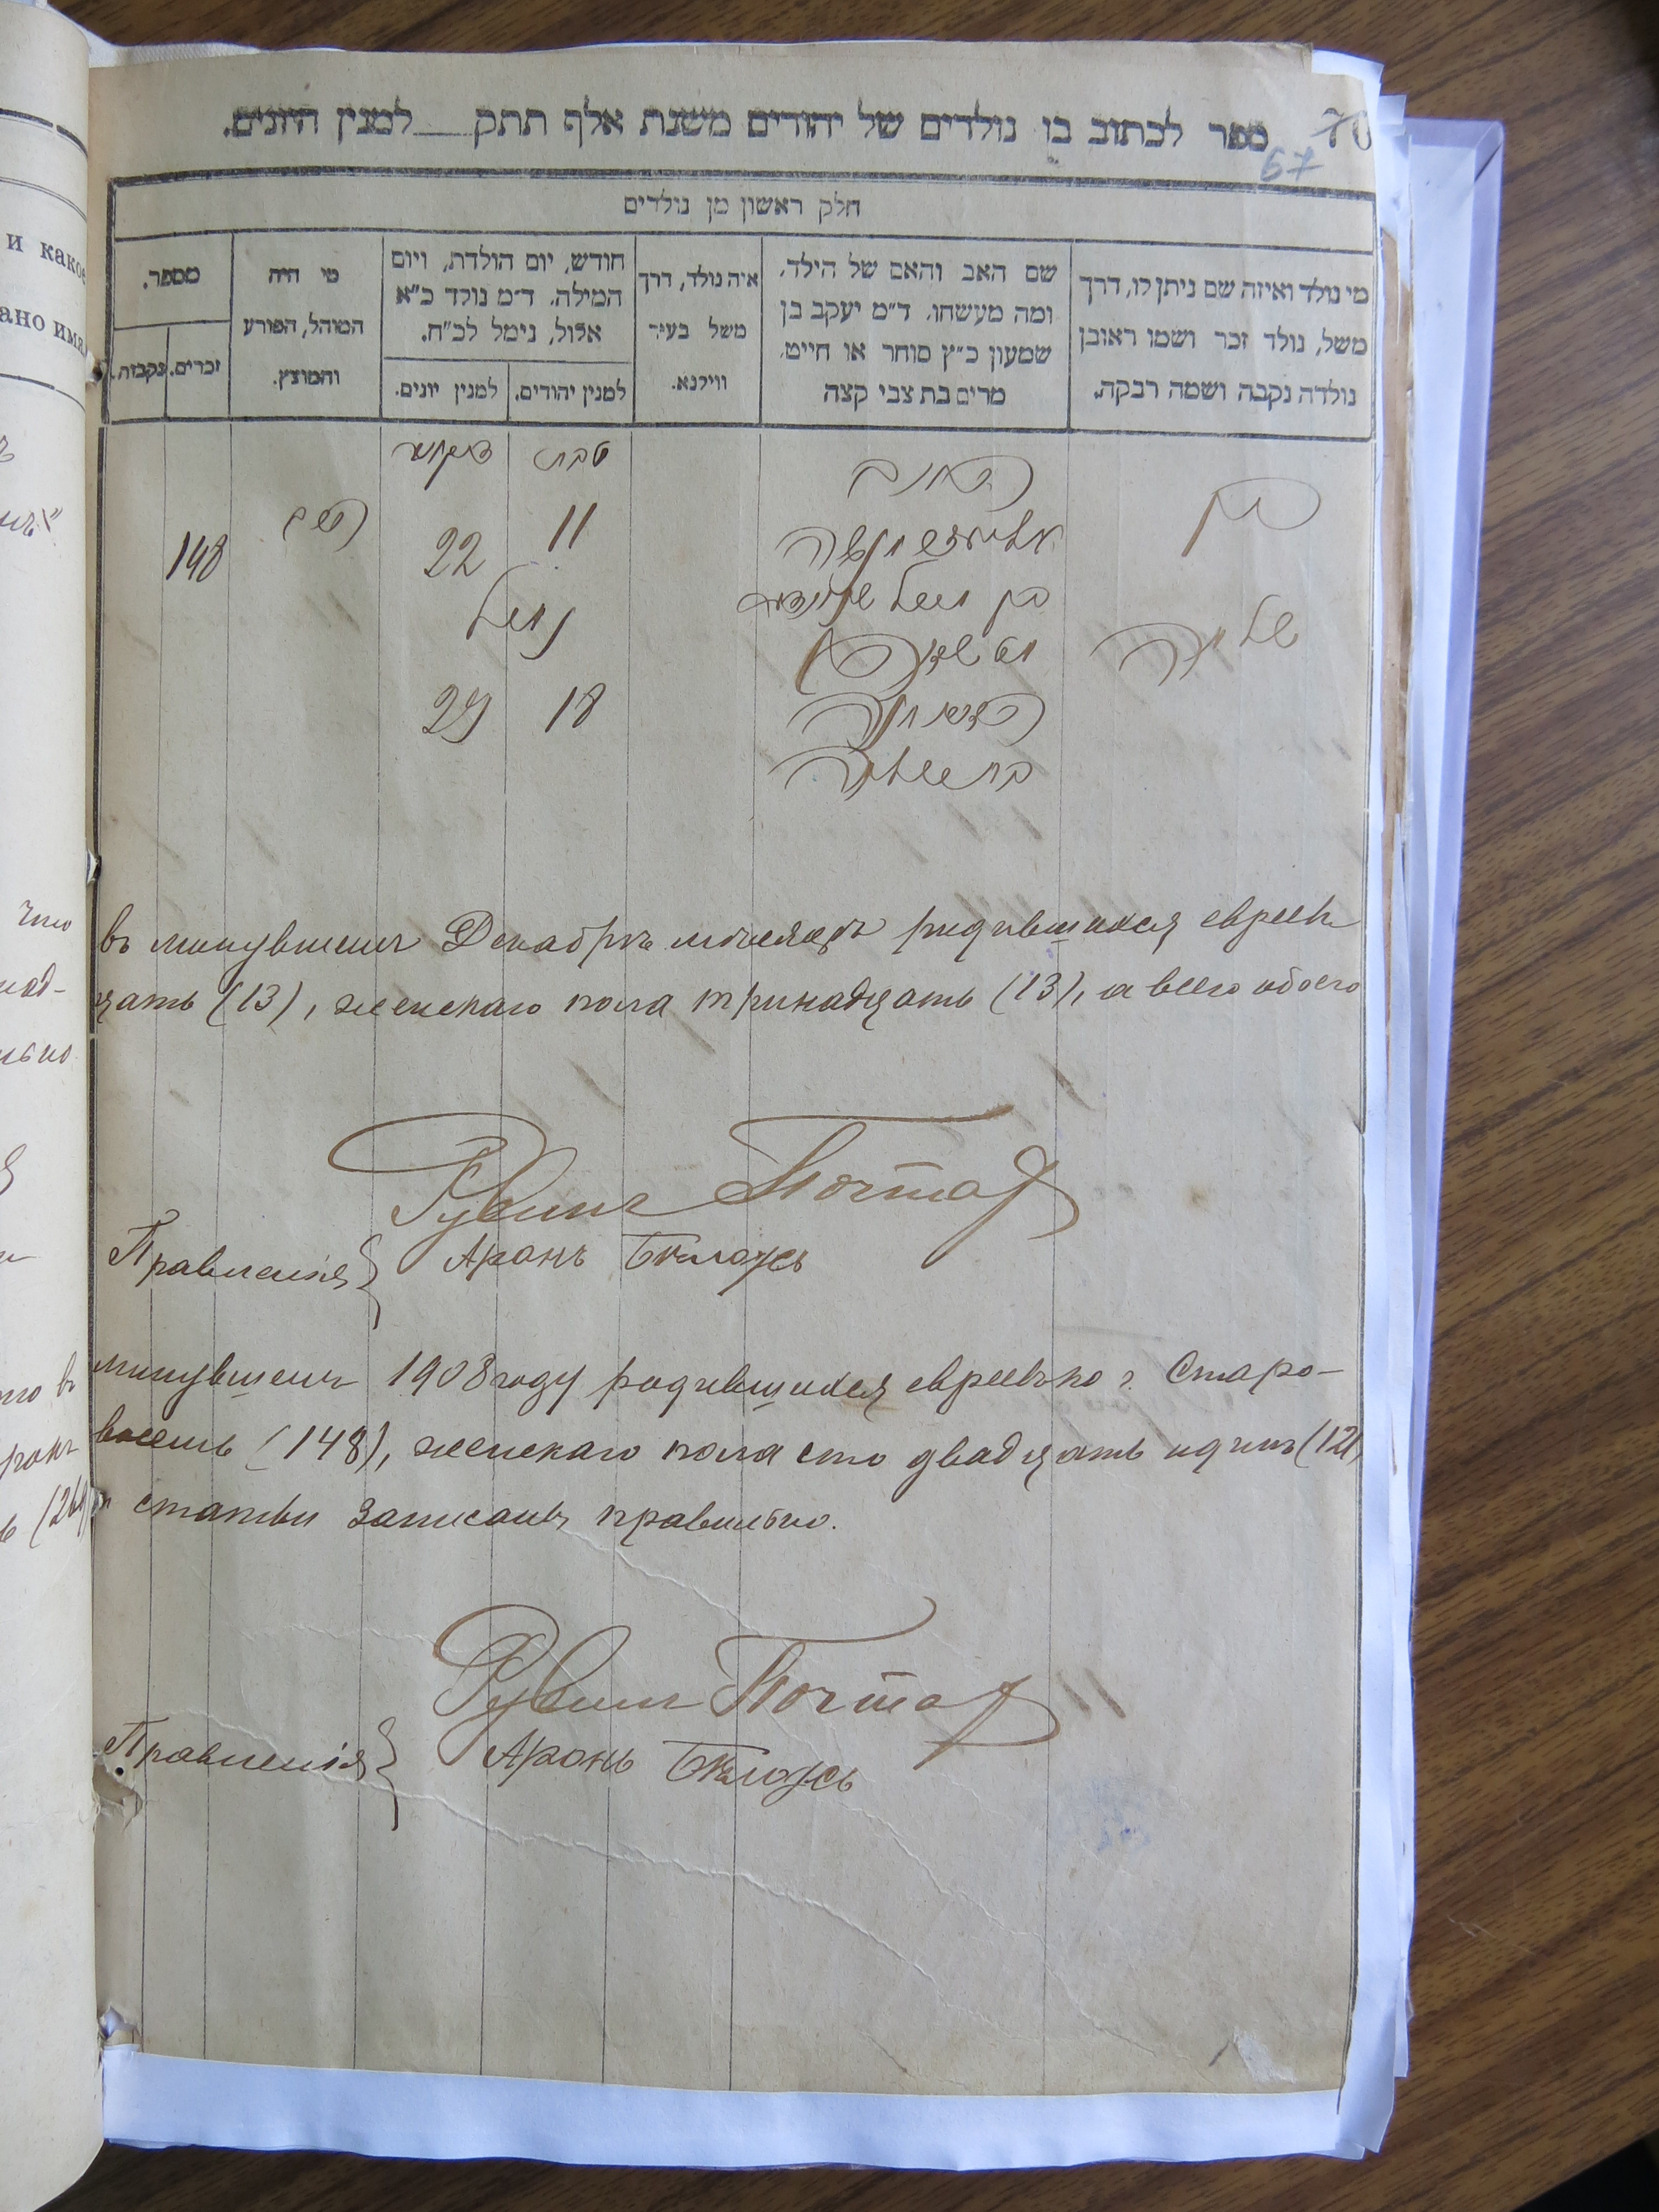 ספר לכתוב בו נולדים של יהודים משנת אלף תתק למנין היונים.
70
67
חלק ראשון מן נולדים
מי נולד ואיזה שם ניתן לו, דרך
משל, נולד זכר ושמו ראובן
נולדה נקבה ושמה רבקה.
שם האב והאם של הילד,
ומה מעשהו. ד״מ יעקב בן
שמעון כ״ץ סוחר או חייט,
מרים בת צבי קצה
איה נולד, דרך
משל בעיר
ווילנא.
חודש, יום הולדת, ויום
המילה. ד״מ נולד כ״א
אלול, נימל לכ״ח.
למנין יהודים.
למנין יונים.
מי היה
המוהל, הפורע
והמוצץ.
מספר.
זכרים.
נקבות.
טבת
בן
האב
11
22
148
נימול
18
29
и какое
ано имя
въ минувшемъ Декабрѣ мѣсяцѣ родившихся евреевъ
цать (13), женскаго пола тринадцать (13), а всего обоего
Рувинъ Почтар
Правленія } Аронъ Бѣлоусъ
минувшемъ 1908 году родившихся евреевъ по г. Старо-
восемь (148), женскаго пола сто двадцать одинъ (121
статьи записаны правильно.
Рувинъ Почтар
Правленія } Аронъ Бѣлоусъ